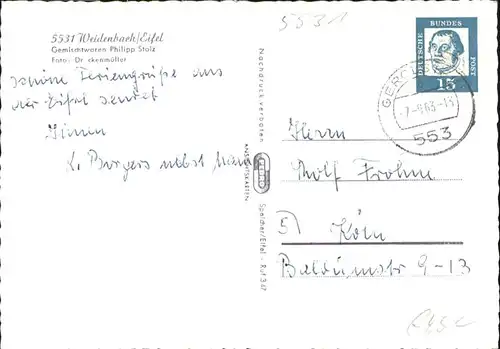 5531
5531 Weidenbach/Eifel
Gemischtwaren Philipp Stolz
Foto: Dr ckenmüller
schöne Feriengrüße aus
der Eifel sendet
Ihnen
K. Burgers nebst
Nachdruck verboten
ANSICHTSKARTEN
Speicher/Eifel - Ruf 347
DEUTSCHE BUNDES POST
15
GEROL
-7.-8.63-1
553
Herrn
Frohn
5) Köln
Balduinstr 9-13